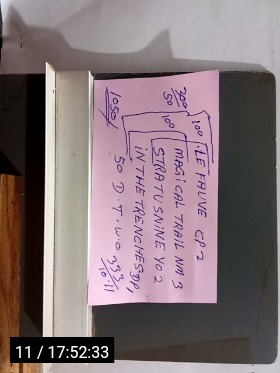 LE FAUVE CP 2
MAGICAL TRAIL NA 3
STRATUSNINE YO 2
IN THE TRENCHES DP,
50 D.T.W.O 333
10.11
300
50
100
100
1050/
11 / 17:52:33